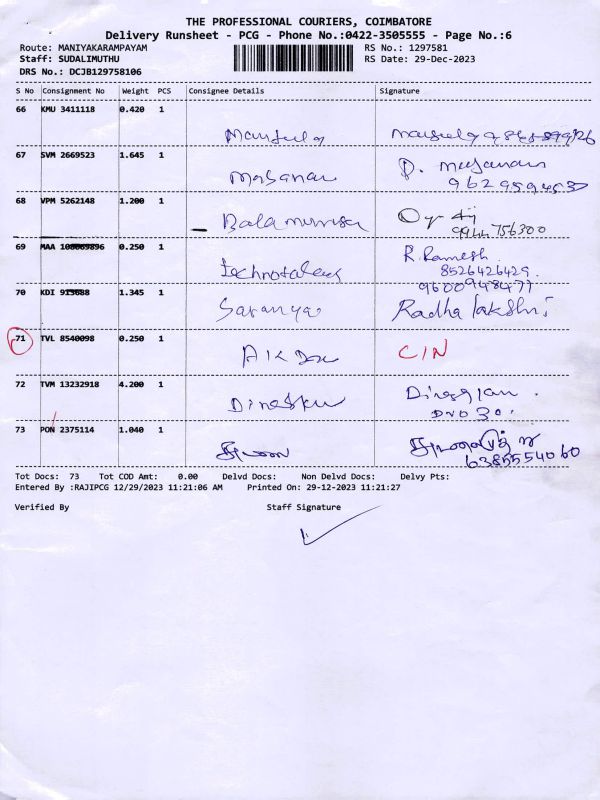 THE PROFESSIONAL COURIERS, COIMBATORE
Delivery Runsheet - PCG - Phone No.:0422-3505555 - Page No.:6
Route: MANIYAKARAMPAYAM RS No.: 1297581
Staff: SUDALIMUTHU RS Date: 29-Dec-2023
DRS No.: DCJB129758106
S No Consignment No Weight PCS Consignee Details Signature
66 KMU 3411118 0.420 1
67 SVM 2669523 1.645 1
9629594537
68 VPM 5262148 1.200 1
Balamurusa
9944756300
69 MAA 0.250 1
R. Ramesh.
8526426429.
9600948477
70 KDI 1.345 1
Saranya Radha lakshmi
71 TVL 8540098 0.250 1
C/N
72 TVM 13232918 4.200 1
Dineshku
73 PON 2375114 1.040 1
6385554060
Tot Docs: 73 Tot COD Amt: 0.00 Delvd Docs: Non Delvd Docs: Delvy Pts:
Entered By :RAJIPCG 12/29/2023 11:21:06 AM Printed On: 29-12-2023 11:21:27
Verified By Staff Signature